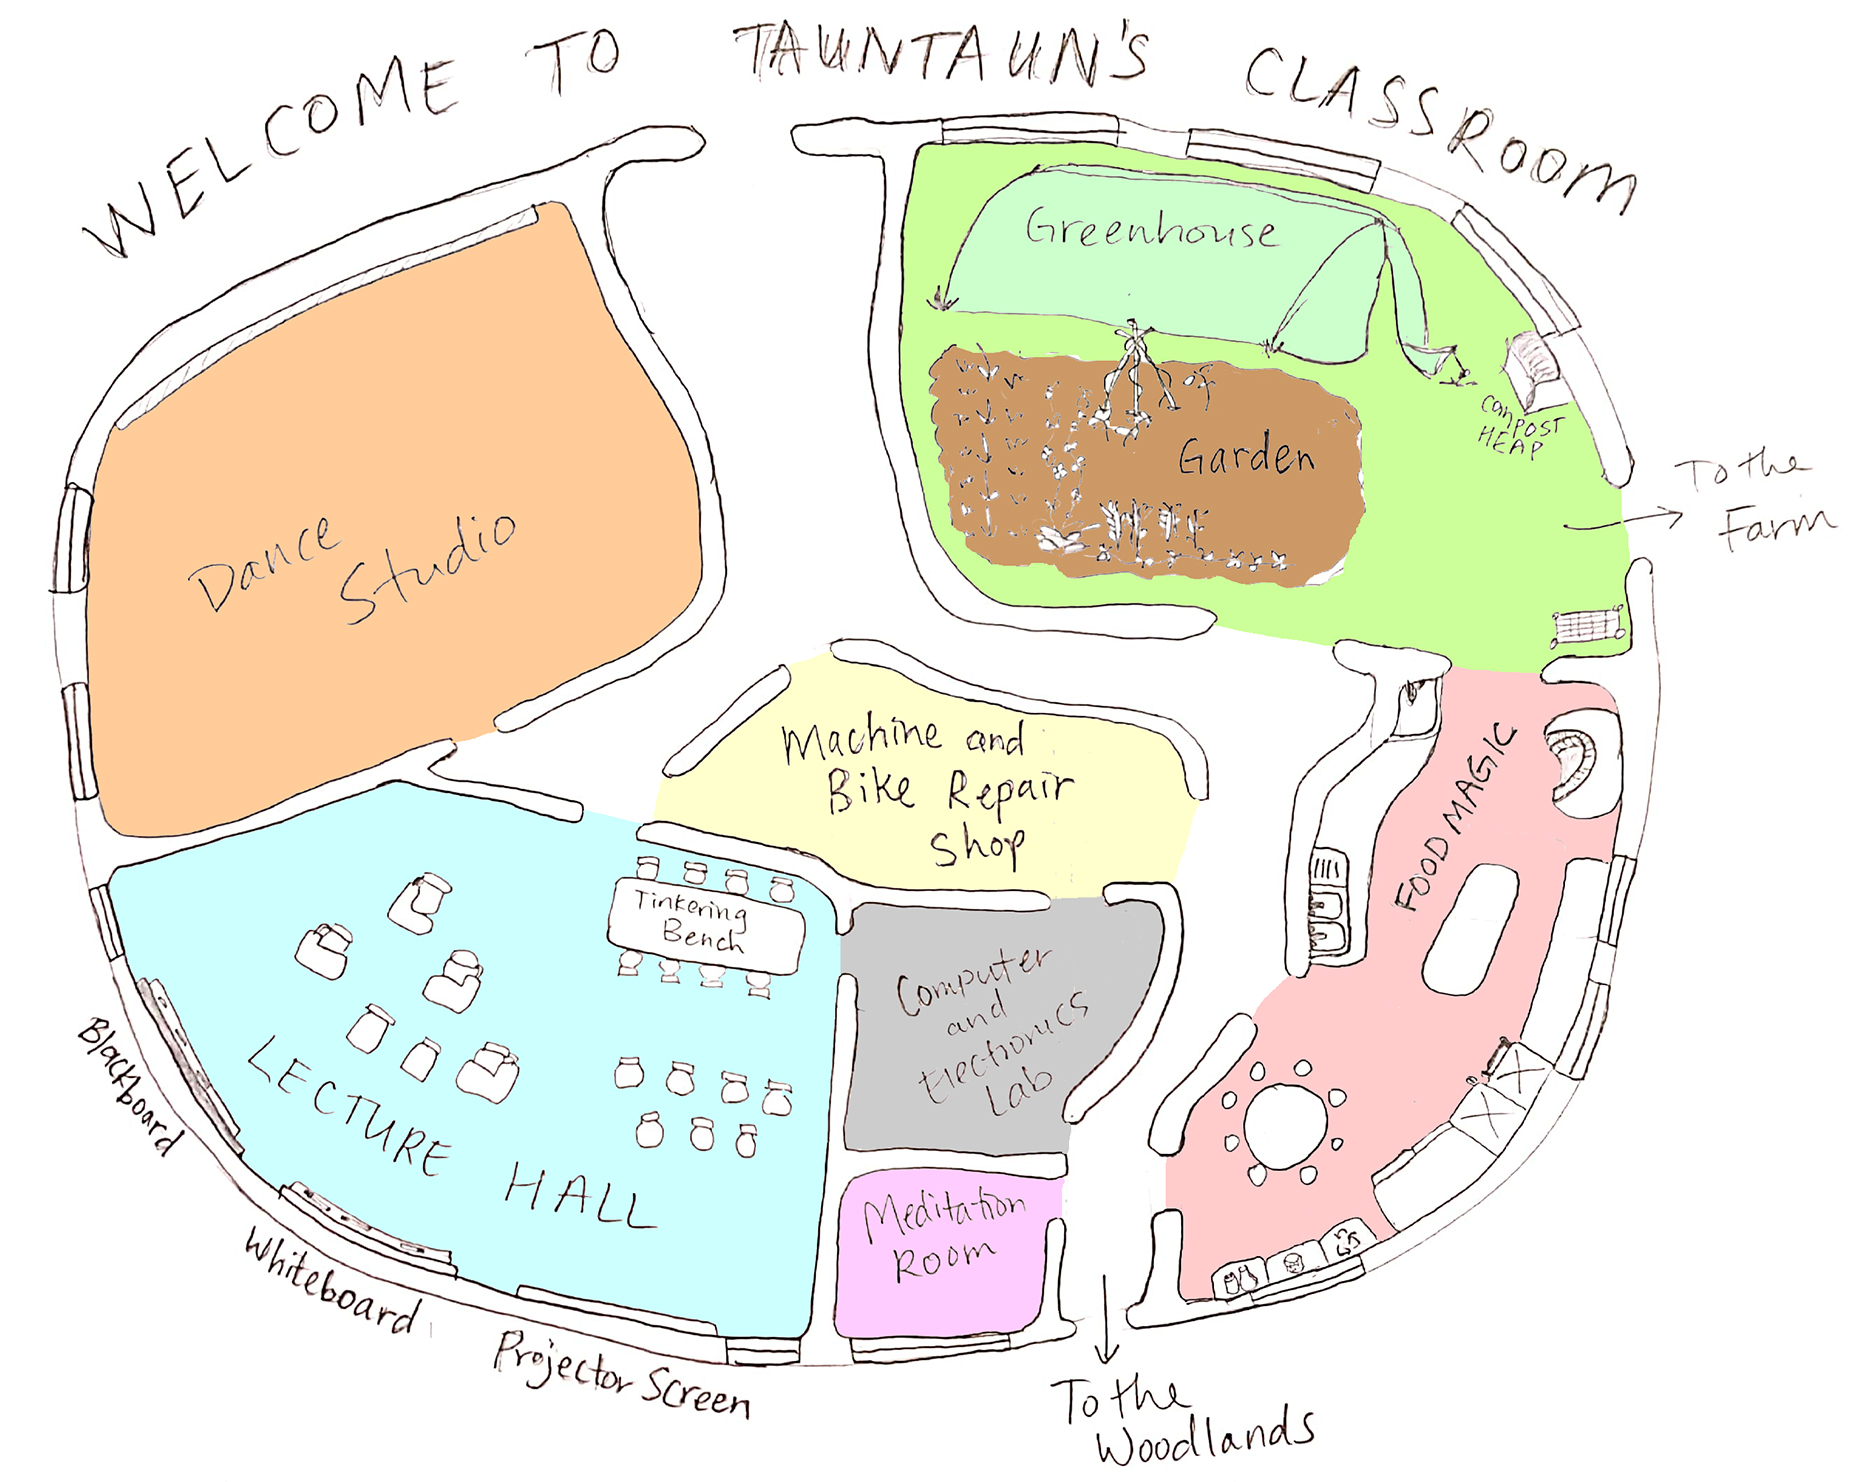 WELCOME TO TAUNTAUN'S CLASSROOM
Greenhouse
COMPOST
HEAP
Garden
To the
Farm
Dance
Studio
Machine and
Bike Repair
Shop
FOOD MAGIC
Tinkering
Bench
Computer
and
Electronics
Lab
LECTURE HALL
Meditation
Room
Blackboard
Whiteboard
Projector Screen
To the
Woodlands